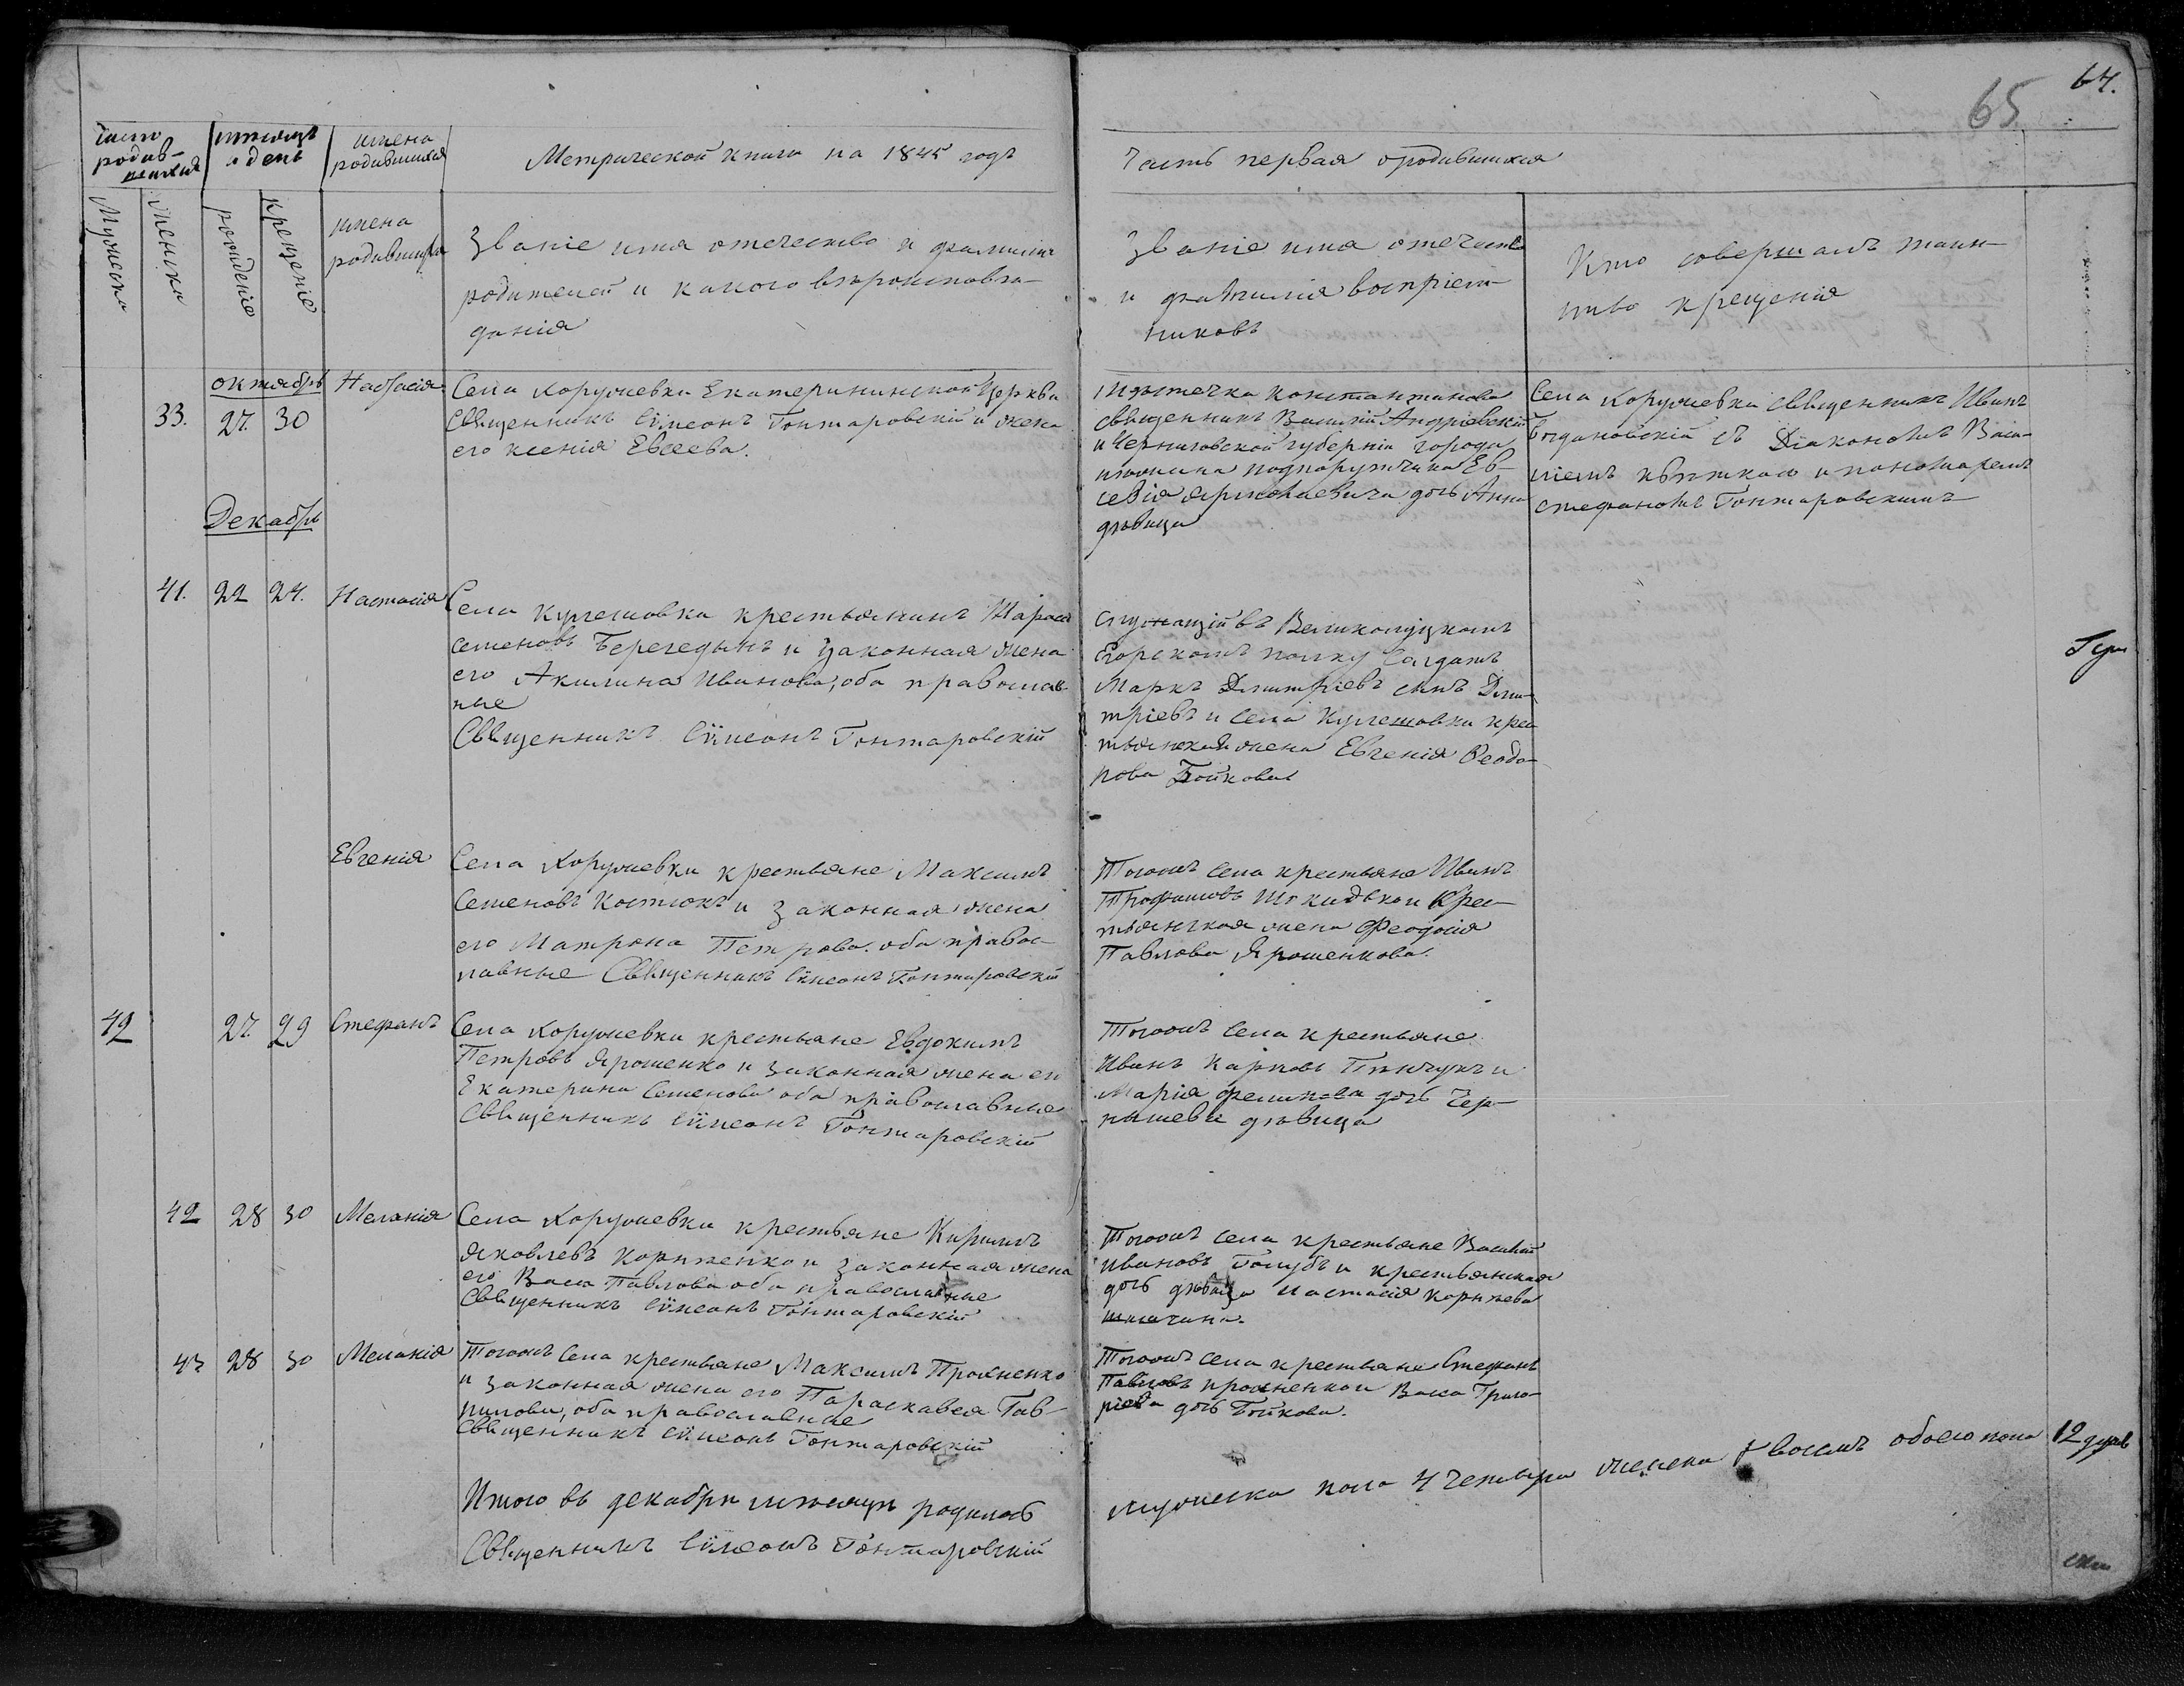 64.
65
число родив-
шихся
мѣсяцъ
и день
имена
родившихся
Метрической книги на 1845 годъ
Часть первая о родившихся
Мужеска
Женска
рожденіе
крещеніе
имена
родившихся
Званіе имя отечество и фамилія
родителей и какого вѣроисповѣ-
данія
Званіе имя отечество
и фамилія воспріем-
никовъ
Кто совершалъ таин-
ство крещенія
октябрь
33. 27. 30
Настасія
Села Коружевки Екатерининской Церкви
Священникъ Сѵмеонъ Гонтаровскій и жена
его Ксенія Евсеева.
Мѣстечка Константинова
священникъ Василій Андріевскій
и Черниговской губерніи города
подпоручика Ев-
севія Ярмолаевича дочь Анна
дѣвица
Села Коружевки священникъ Иванъ
Богдановскій съ Діакономъ Васи-
ліемъ и пономаремъ
Стефаномъ Гонтаровскимъ
Декабрь
41. 22 24. Настасія
Села крестьянинъ Тарасъ
Семеновъ и законная жена
его Акилина Иванова, оба православ
ные
Священникъ Сѵмеонъ Гонтаровскій
служащій въ Великолуцкомъ
Егорскомъ полку Салдатъ
Маркъ Дмитріевъ сынъ Дми-
тріевъ и Села крес
тьянская жена Евгенія Ѳеодо-
рова Бойкова
Евгенія
Села Коружевки крестьяне Максимъ
Семеновъ Костюкъ и законная жена
его Матрона Петрова. оба правос-
лавные Священникъ Сѵмеонъ Гонтаровскій
Тогожъ села крестьяне Иванъ
Трофимовъ и Крес-
тьянская жена Феодосія
Павлова Ярошенкова.
42 27. 29 Стефанъ
Села Коружевки крестьяне Евдокимъ
Петровъ Ярошенко и законная жена его
Екатерина Семенова оба православные
Священникъ Сѵмеонъ Гонтаровскій
Тогожъ села крестьяне
Иванъ Карповъ и
Марія дочь Чер-
нышева дѣвица
42 28 30 Меланія
Села Коружевки крестьяне Кирилъ
Яковлевъ Корніенко и законная жена
его Васса Павлова оба православные
Священникъ Сѵмеонъ Гонтаровскій
Тогожъ села крестьяне Василій
Ивановъ Голубъ и крестьянская
дочь дѣвица Настасія
43 28 30 Меланія
Тогожъ села крестьяне Максимъ
и законная жена его Параскавея Гав-
рилова, оба православные
Священникъ Сѵмеонъ Гонтаровскій
Тогожъ села крестьяне Стефанъ
Павловъ и Васса Григо-
ріева дочь Бойкова.
Итого въ декабрѣ мѣсяцѣ родилось
мужеска пола 4 четыре женска 8 восемъ обоего пола 12 душъ
Священникъ Сѵмеонъ Гонтаровскій